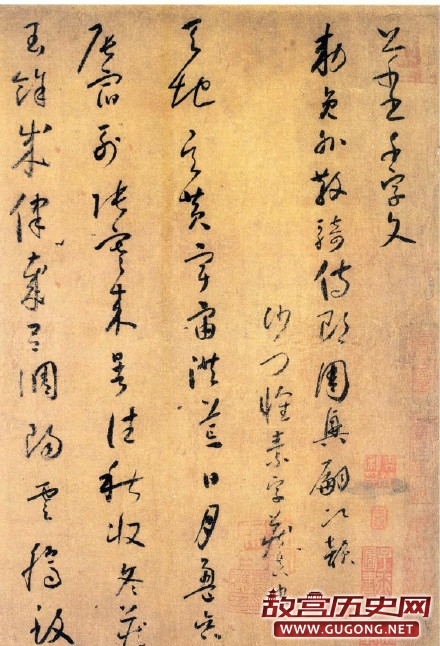 千字文
勑員外散騎侍郎周興嗣次韻
沙門懷素字藏真
天地玄黃宇宙洪荒日月盈昃
辰宿列張寒來暑往秋收冬藏
閏餘成律歲呂調陽雲騰致
故宫历史网
www.GUGONG.NET